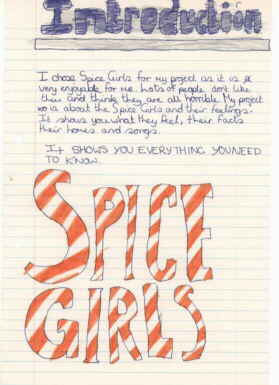 Introduction
I chose Spice Girls for my project as it is
very enjoyable for me. Lots of people dont like
them and think they are all horrible. My project
is about the Spice Girls and their feelings.
It shows you what they feel, their facts
their homes and songs.
It SHOWS YOU EVERYTHING YOU NEED
TO KNOW.
SPICE
GIRLS